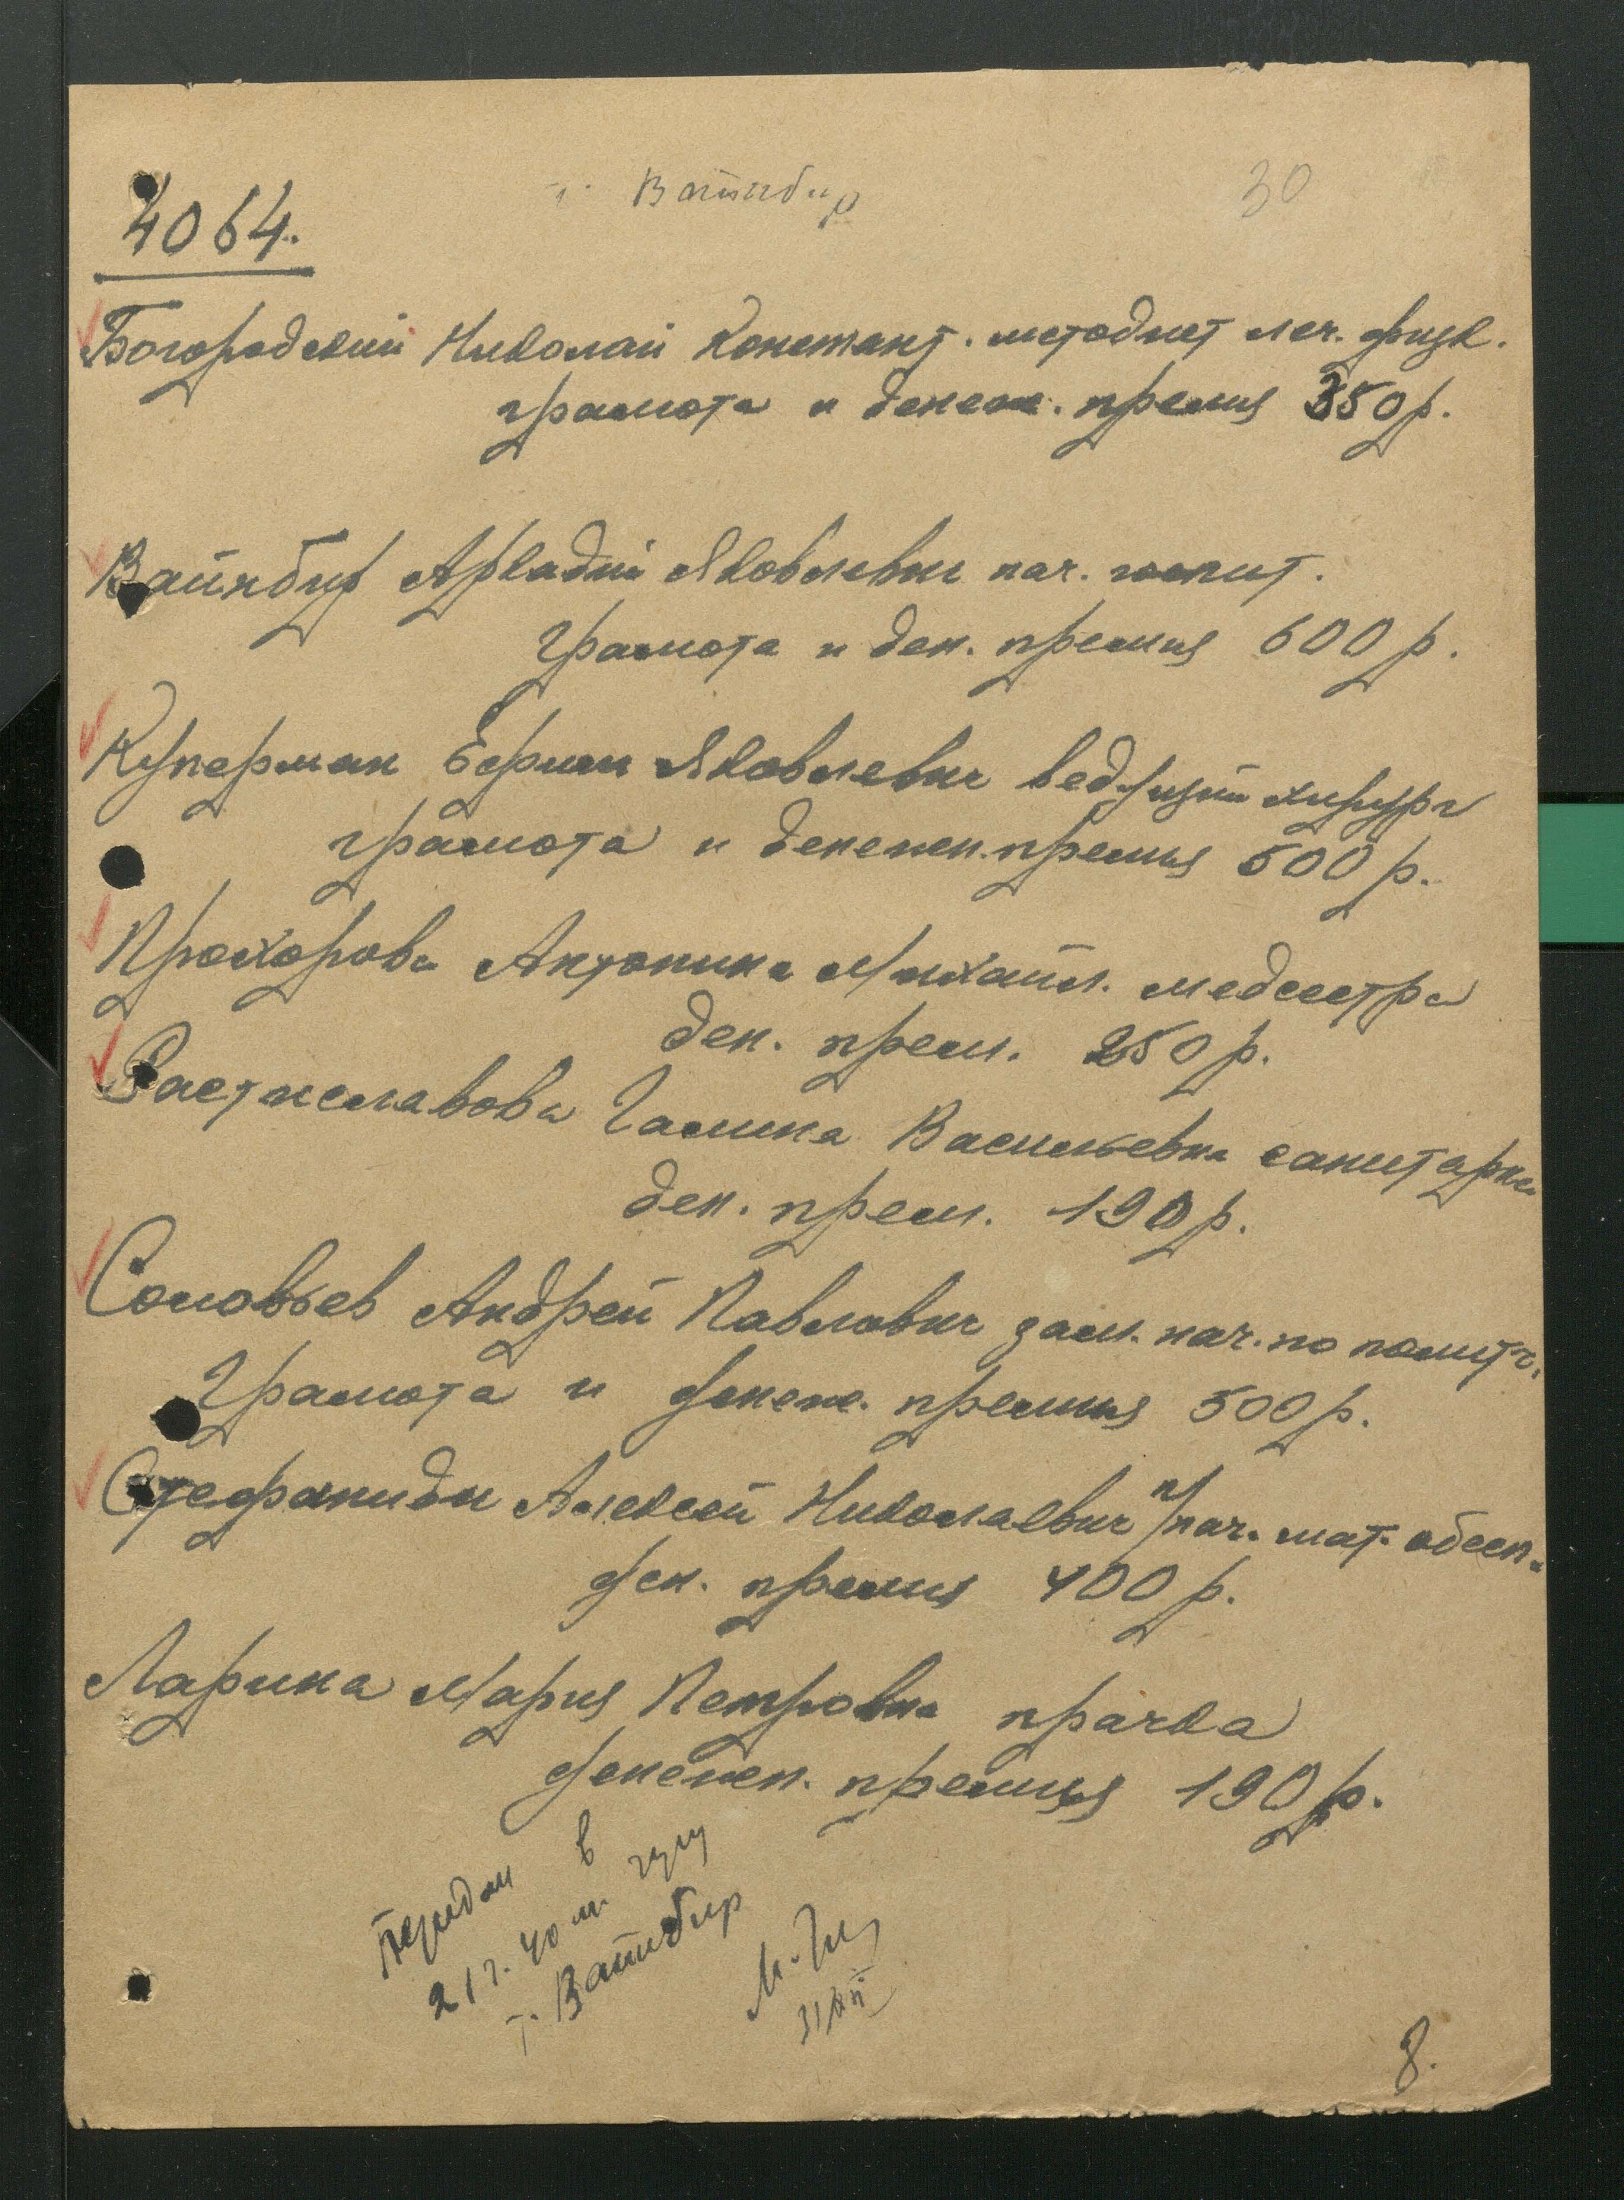 т. Вайнбир
30
4064.
Богородский Николай Констант. методист леч. физк.
грамота и денеж. премия 350 р.
Вайнбир Аркадий Яковлевич нач. госпит.
Грамота и ден. премия 600 р.
Куперман Ефим Яковлевич ведущий хирург
грамота и денежн. премия 500 р.
Прохорова Антонина Михайл. медсестра
ден. прем. 250 р.
Растиславова Галина Васильевна санитарка
ден. прем. 190 р.
Соловьев Андрей Павлович зам. нач. по политч.
Грамота и денеж. премия 500 р.
Стефаниди Алексей Николаевич п/нач. мат. обесп.
ден. премия 400 р.
Ларина Мария Петровна прачка
денежн. премия 190 р.
Передан в
21 ч. 40 м.
т. Вайнбир
31/XII
8.